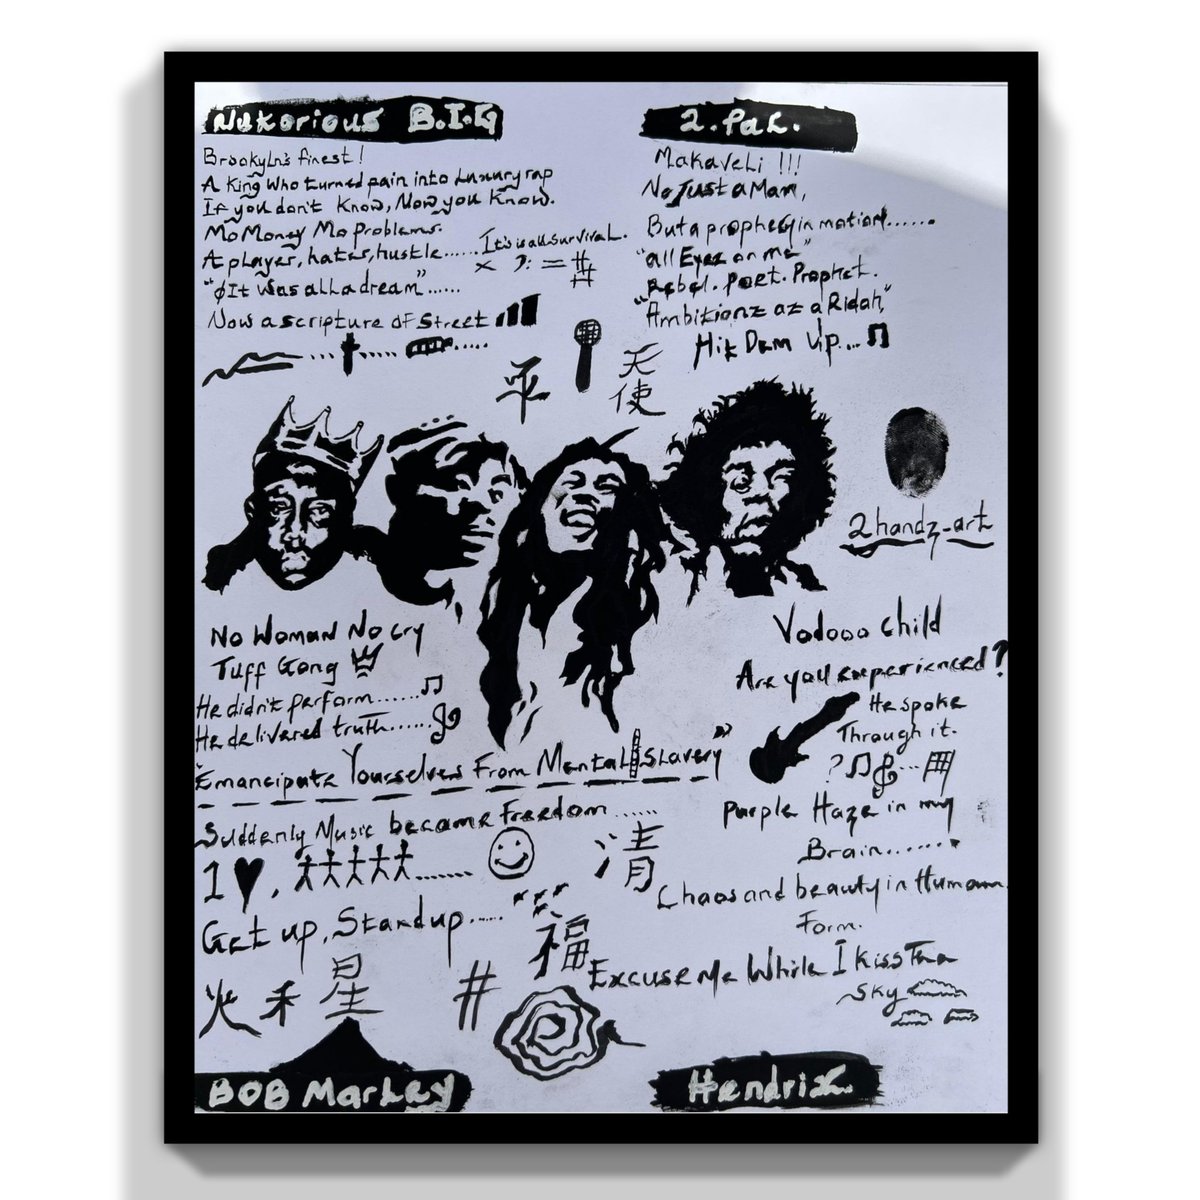 Notorious B.I.G
Brooklyn's finest!
A King Who turned pain into Luxury rap
If you don't Know, Now you Know.
Mo Money Mo Problems.
A player, hater, hustle...... It's is all survival.
× ?: = #
#
"It was all a dream"......
Now a scripture of Street
2.Pac.
Makaveli !!!
No Just a Man,
But a prophecy in motion......
"all Eyez on me"
Rebel. Poet. Prophet.
"Ambitionz az a Ridah"
Hit Dem Up...
平
天
使
2handz-art
No Woman No Cry
Tuff Gong
He didn't perform......
He delivered truth......
"Emancipate Yourselves From Mental Slavery"
Suddenly Music became Freedom......
1 ♥,
Get up, Stand up......
清
福
火 禾 星
#
BOB Marley
Vodooo Child
Are you experienced?
He spoke
Through it.
?
Purple Haze in my
Brain......
Chaos and beauty in Humann
Form.
Excuse Me While I Kiss The
Sky
Hendrix.